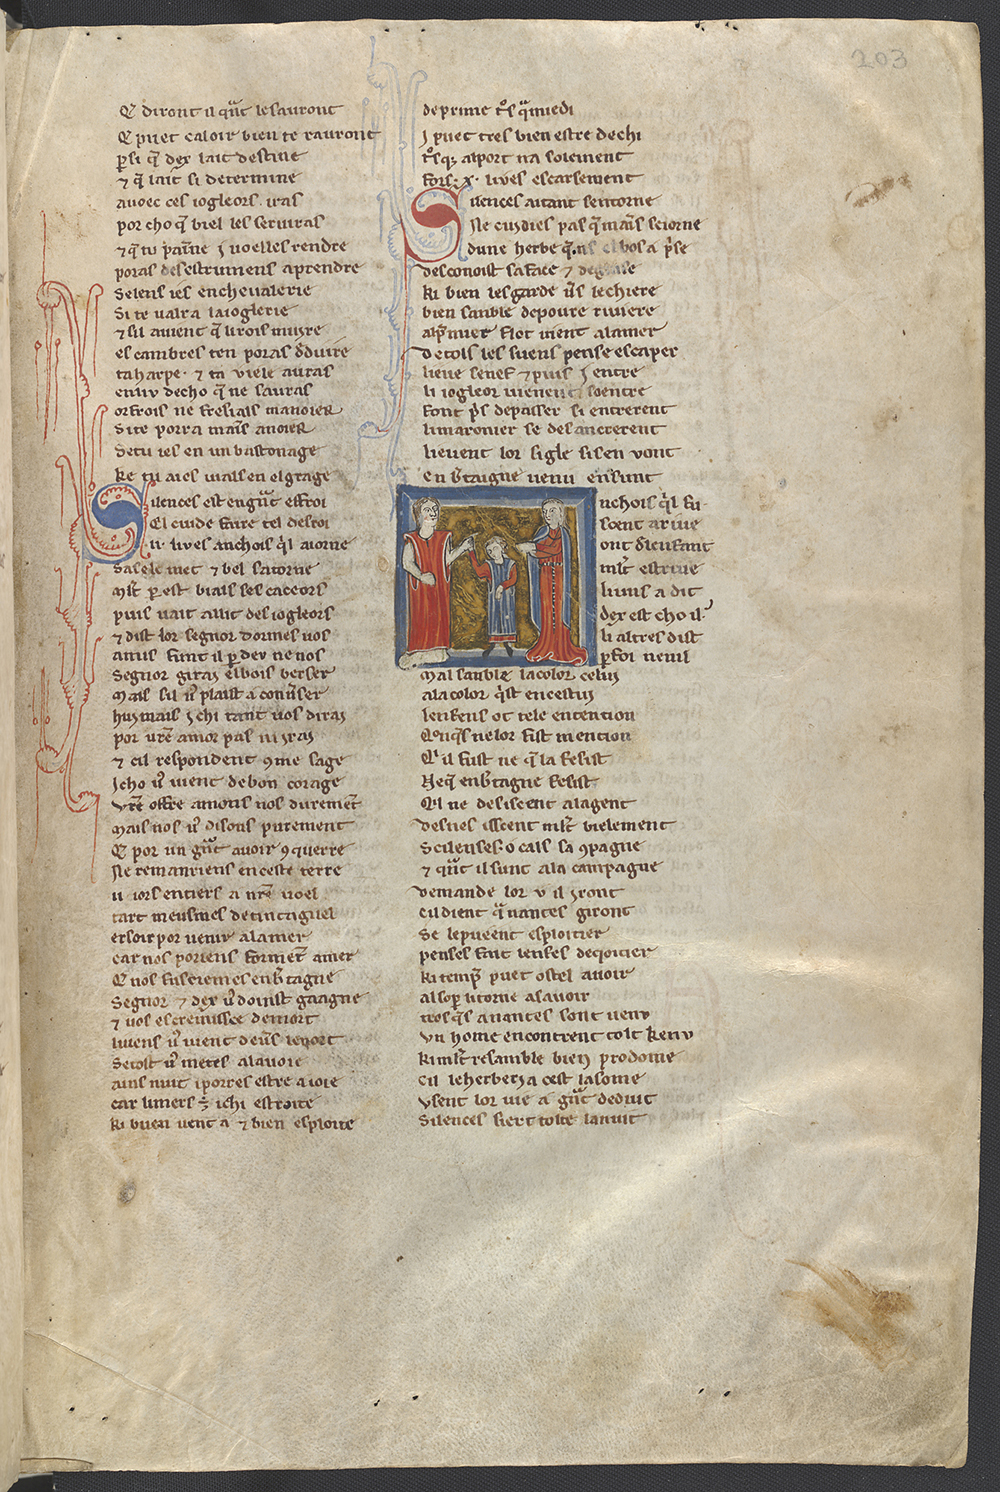 203
E diront il qu̅t le sauront
E puet caloir bien te rauront
p̱ si q̅ dex lait destine
⁊ q̅ lait si determine
auoec ces iogleors iras
por cho q̅ biel les seruiras
⁊ q̅ tu
poras des estrumens aprendre
Se lens ies en cheualerie
Si te ualra la ioglerie
⁊ sil auient q̅ li rois muire
es cambres ten poras
ta harpe ⁊ ta viele auras
en liu de cho q̅ ne sauras
orfrois ne fresials manoier
Si te porra mains anoier
Se tu ies en un bastonage
ke tu aies uials en el gage
Silences est en
El cuide faire tel desroi
ii liues anchois q̅l aiorne
Sa sele met ⁊ bel satorne
puis uait al lit des iogleors
⁊ dist lor segnor dormes uos
amis funt il p̱ deu ne nos
Segnor girai el bois berser
Mais sil u̅ plaist a
hui mais ichi tant uos dirai
por ur̅e amor pas ni irai
⁊ cil respondent ꝯme sage
Icho u̅ uient de bon corage
Vr̅e offre amons nos durement
Mais nos u̅ disons purement
E por un gn̅t auoir ꝯquerre
Ne remanriens en ceste terre
ii iors entiers a nr̅e uoel
tart meusmes de tintaguel
er soir por uenir a la mer
car nos poriens forment amer
E nos fusciemes en bretagne
Segnor ⁊ dex u̅ doinst gaagne
⁊ uos escremisce de mort
liuens u̅ uient
Se tost u̅ metes a la uoie
ains nuit i porres estre a ioie
car li mers ÷ ichi estroite
ki buen uent a ⁊ bien esploite
de prime
I puet tres bien estre de chi
al port na solement
fors x liues escarsement
Silences atant sentorne
Ne cuidies pas q̅ mains seiorne
dune herbe el bos a prise
desconoist sa face ⁊
ki bien lesgarde u̅s le chiere
bien sanble de poure riuiere
al premier flot uient a la mer
De tols les suens pense escaper
lieue senef ⁊ puis i entre
li iogleor uienent soentre
font pris de passer si entrerent
li maronier se desancrerent
lieuent lor sigle si sen uont
en bretaigne uenu en sunt
Anchois q̅l fu
scent ariue
ont de lenfant
mlt estriue
li uns a dit
dex est cho il
li altres dist
p̱ foi nenil
Mal sanble la color celui
a la color q̅st en cestui
lenfens ot tele entention
Conq̅s ne lor fist mention
Cil fust ne q̅ la fesist
Ne q̅ en bretagne fesist
Cil ne desiscent a la gent
des nes iscent mlt bielement
Scilenses o cals sa ꝯpagne
⁊ qu̅t il sunt a la campagne
Demande lor u il iront
Cil dient qua nantes giront
Se le pueent esploitier
penses fait lenfes de coitier
ki temp̅ puet ostel auoir
Also
tros q̅s a nantes sont uenu
Vn home encontrent tolt kenu
ki mlt resamble bien prodome
Cil le herberia cest la some
Vsent lor uie a gn̅t deduit
Silences siert tolte la nuit